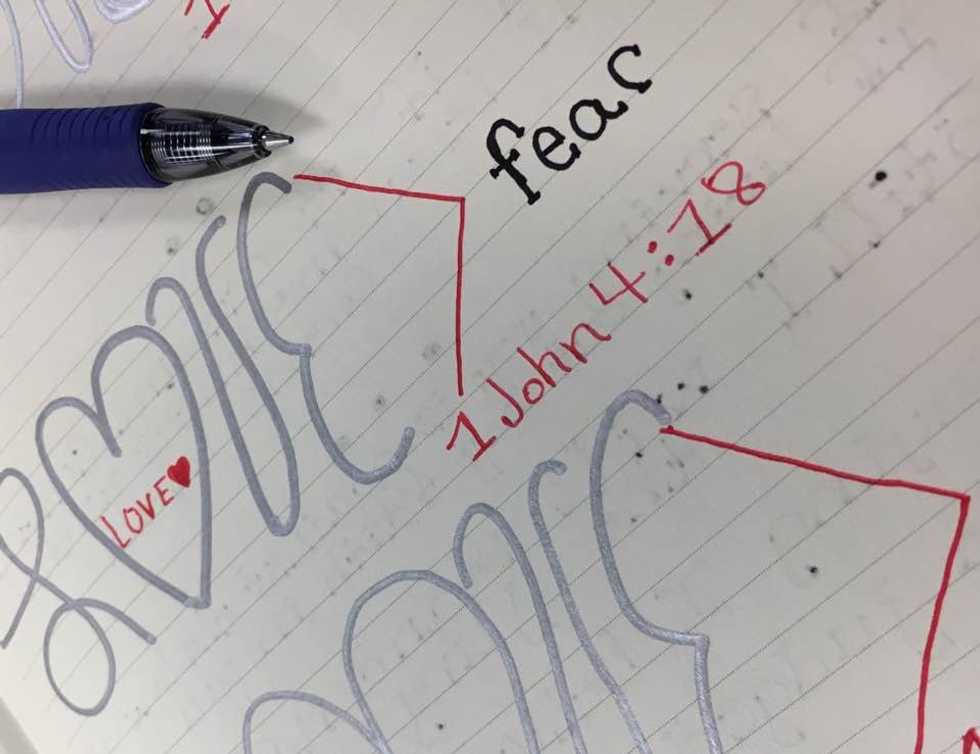 Love > fear
LOVE♥
1 John 4:18